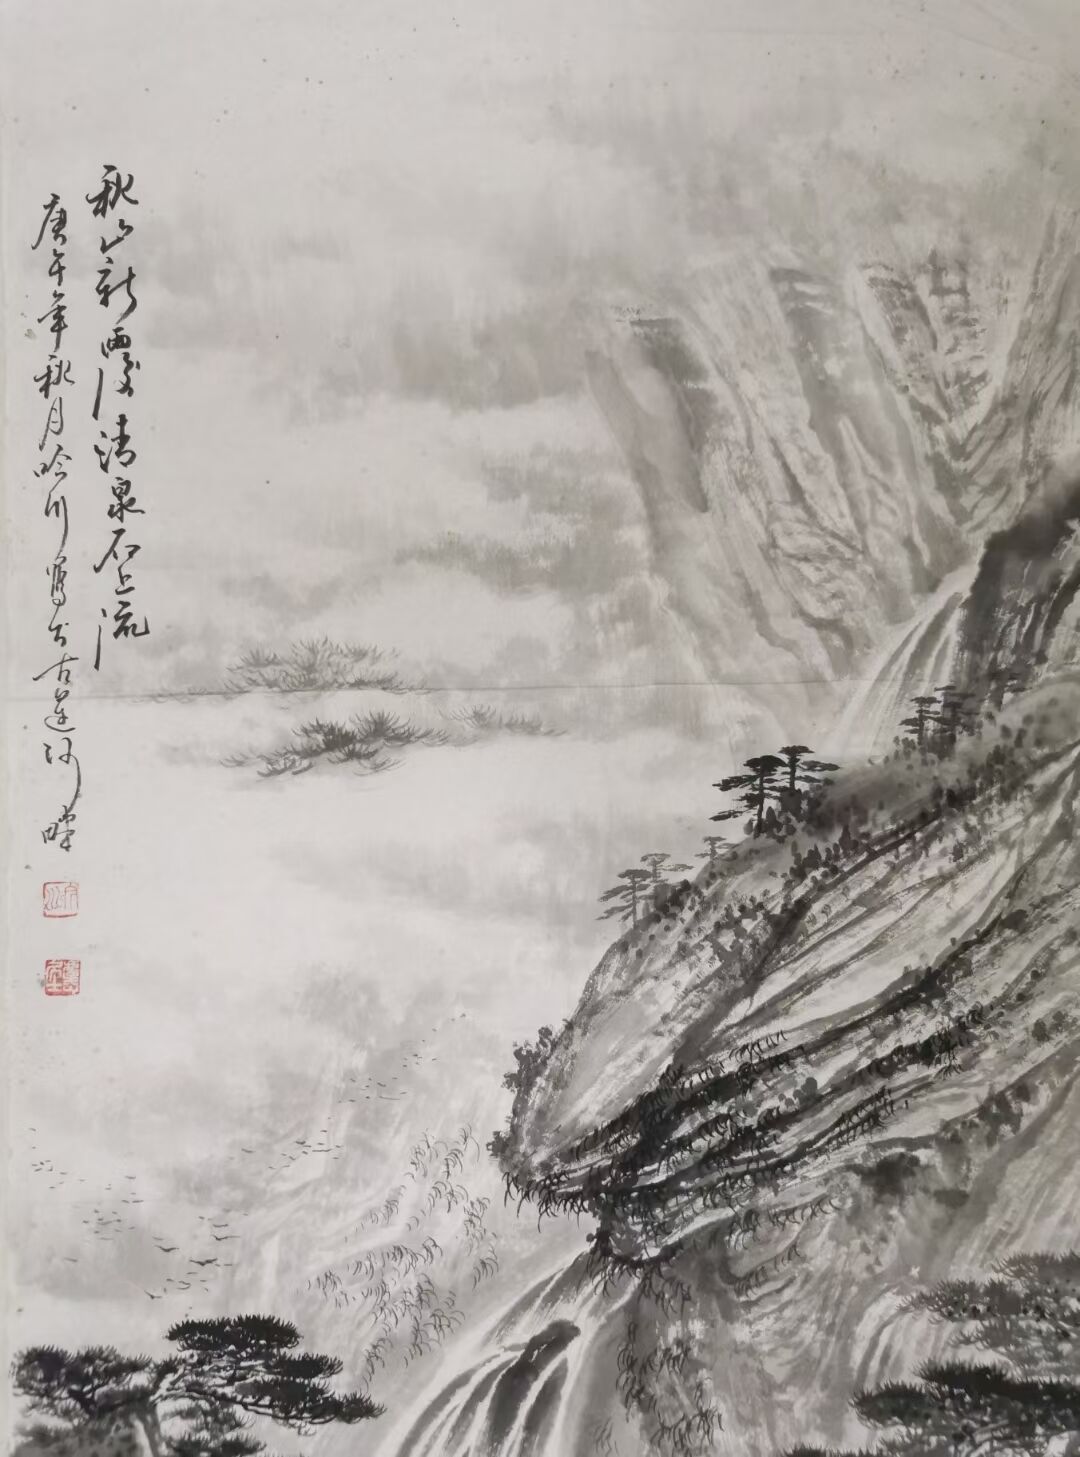 秋山新雨后清泉石上流
庚午年秋月吟川写于古莲河畔